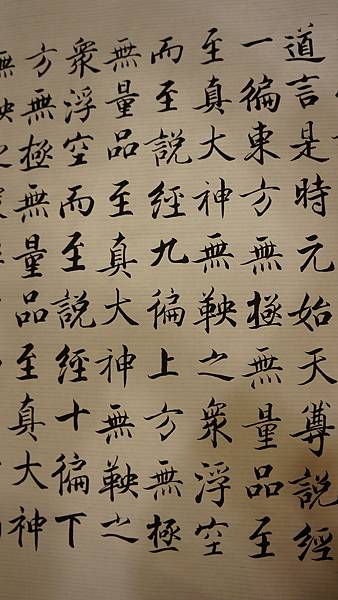 道言是時元始天尊說經
一徧東方無極無量品至
至真大神無鞅之衆浮空
而至說經九徧上方無極
無量品至真大神無鞅之
衆浮空而至說經十徧下
方無極無量品至真大神
無鞅之